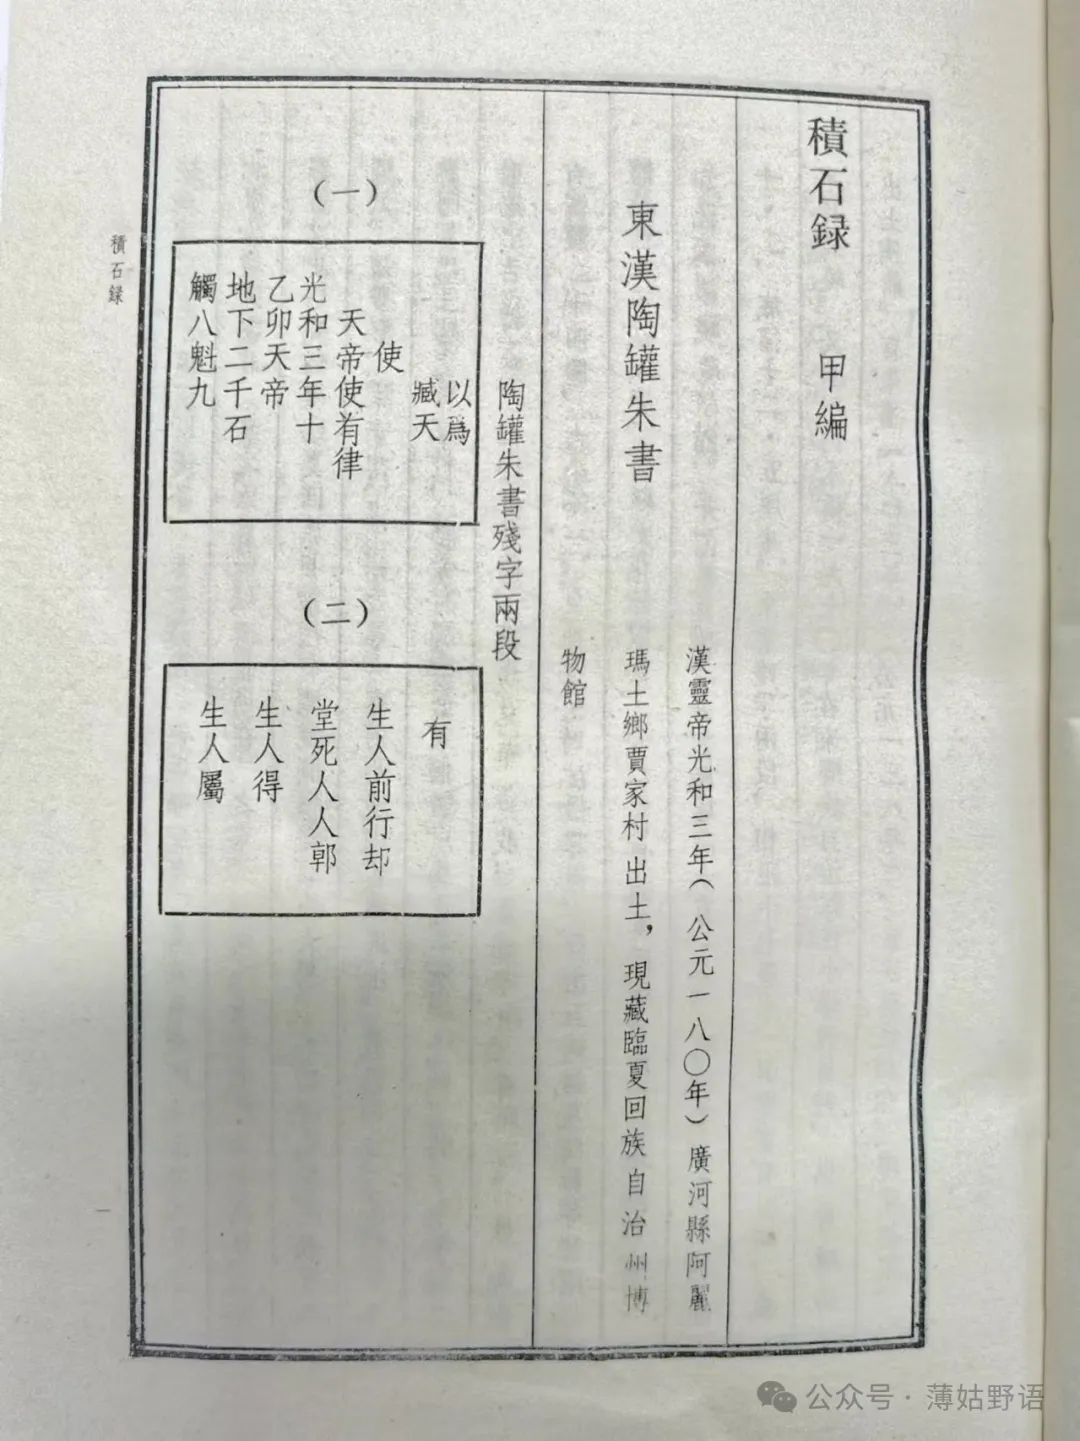 積石録　甲編
東漢陶罐朱書
漢靈帝光和三年（公元一八〇年）廣河縣阿麗
瑪土鄉賈家村出土，現藏臨夏回族自治州博
物館
陶罐朱書殘字兩段
（一）
以爲
臧天
使
天帝使有律
光和三年十
乙卯天帝
地下二千石
觸八魁九
（二）
有
生人前行却
堂死人人郭
生人得
生人屬
積石録
一
公众号·薄姑野语